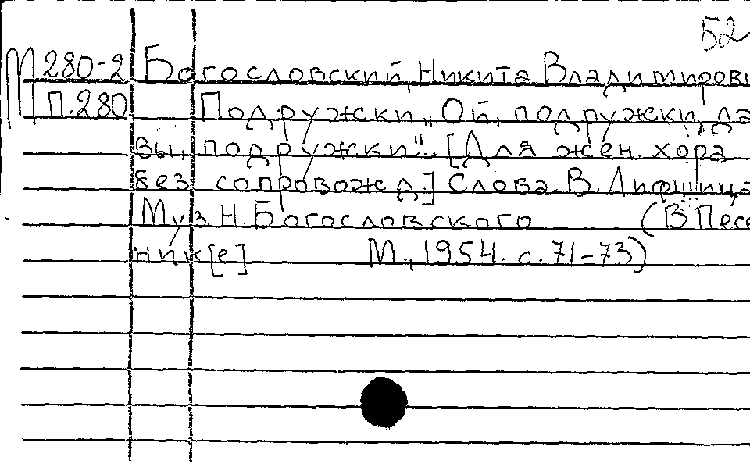 52
М 280-2 Богословский, Никита Владимирови
П.280 Подружки. „Ой, подружки, да
вы, подружки". [Для жен. хора
без сопровожд.] Слова В. Лифшица
Муз. Н. Богословского (В Песе
ник[е] М., 1954. с. 71-73)